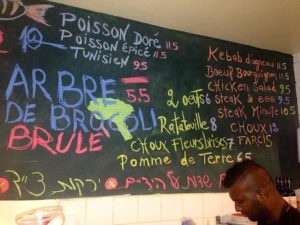 POISSON Doré 11.5
Poisson épicé 11.5
TUNISIEN 9.5
ARBRE 5.5
DE BROCOLI
BRULE
2 oeufs 6
Ratatuille 8
CHOUX Fleurs brisés 7
Pomme de Terre 6.5
Kebab d'agneau 11.5
Boeuf Bourguignon 11.5
CHICKEN Salad 9.5
Steak & egg 9.5
Steak Minute 10.5
CHOUX 12
FARCIS
ירקות
שדות על הגריל